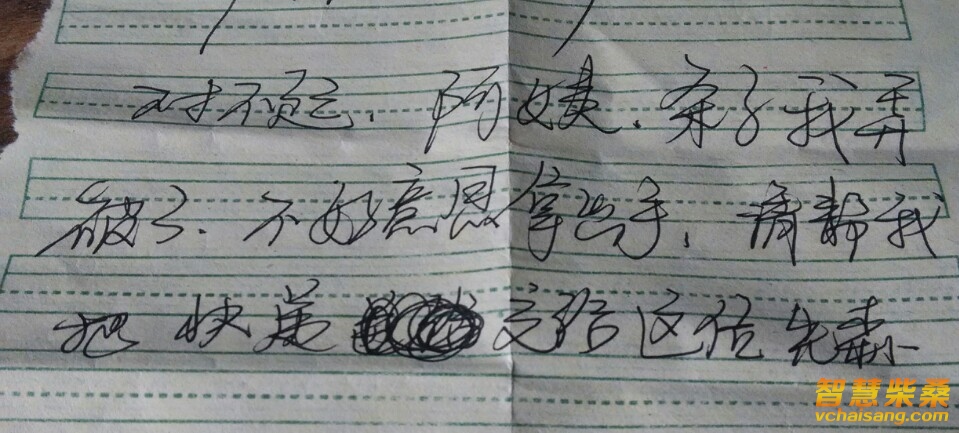 对不起，阿姨，条子我弄
破了，不好意思拿出手，请帮我
把快递交给这位先森
智慧柴桑
vchaisang.com